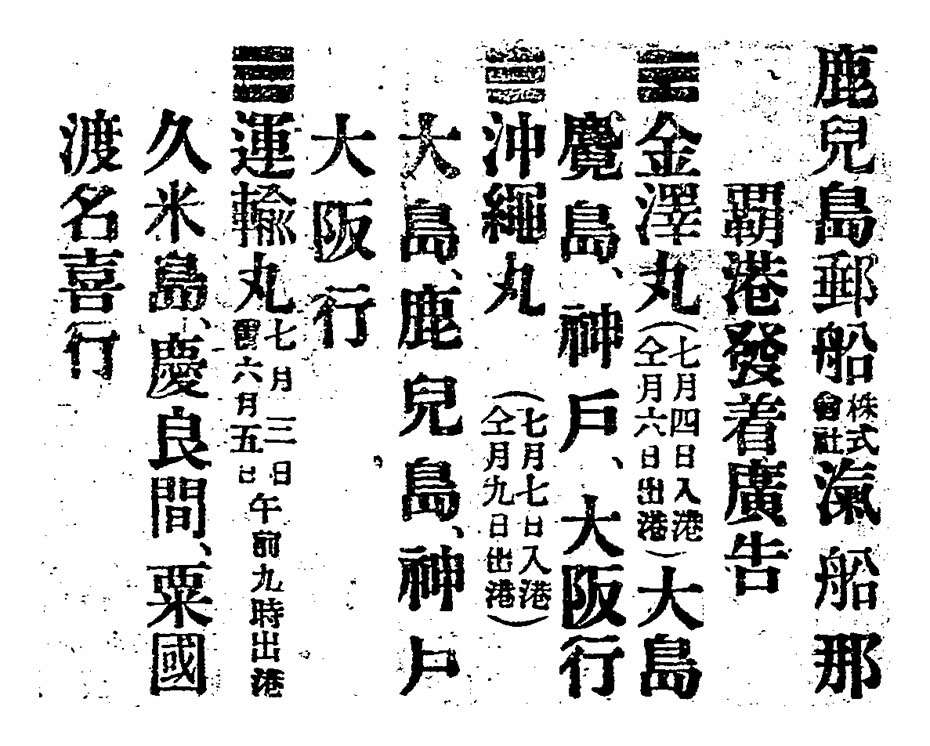 鹿兒島郵船株式會社滊船那
覇港發着廣告
金澤丸(七月四日入港仝月六日出港)大島
麑島、神戶、大阪行
沖繩丸(七月七日入港仝月九日出港)
大島、鹿兒島、神戶
大阪行
運輸丸七月三日舊六月五日午前九時出港
久米島、慶良間、粟國
渡名喜行